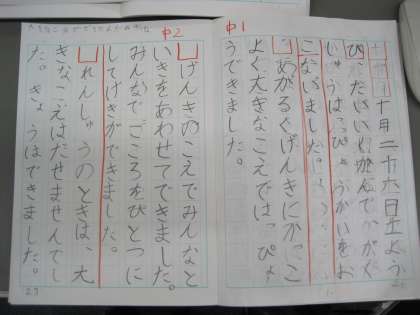 中1
十月二十六日土よう
び、だいいちかんでがくが
しゅうはっぴょうかいをお
こないました。
あかるくげんきにかっこ
よく大きなこえではっぴょ
うできました。
中2
げんきのこえでみんなと
いきをあわせてできました。
みんなでこころをひとつに
してげきができました。
れんしゅうのときは、大
きなこえはだせませんでし
た。きょうはできました。
27